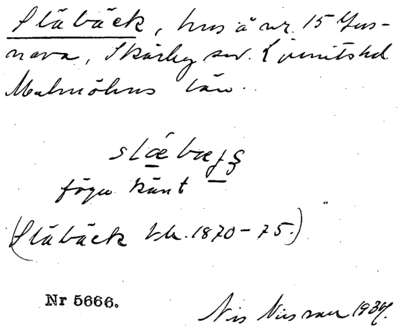 Släbäck, hus å nr. 15 Jus-
nava, Skårby sn. Ljunits hd.
Malmöhus län.
slæbæʝʝ
föga känt
(Släbäck kk. 1870-75.)
Nr 5666.
Nils Nilsson 1934.